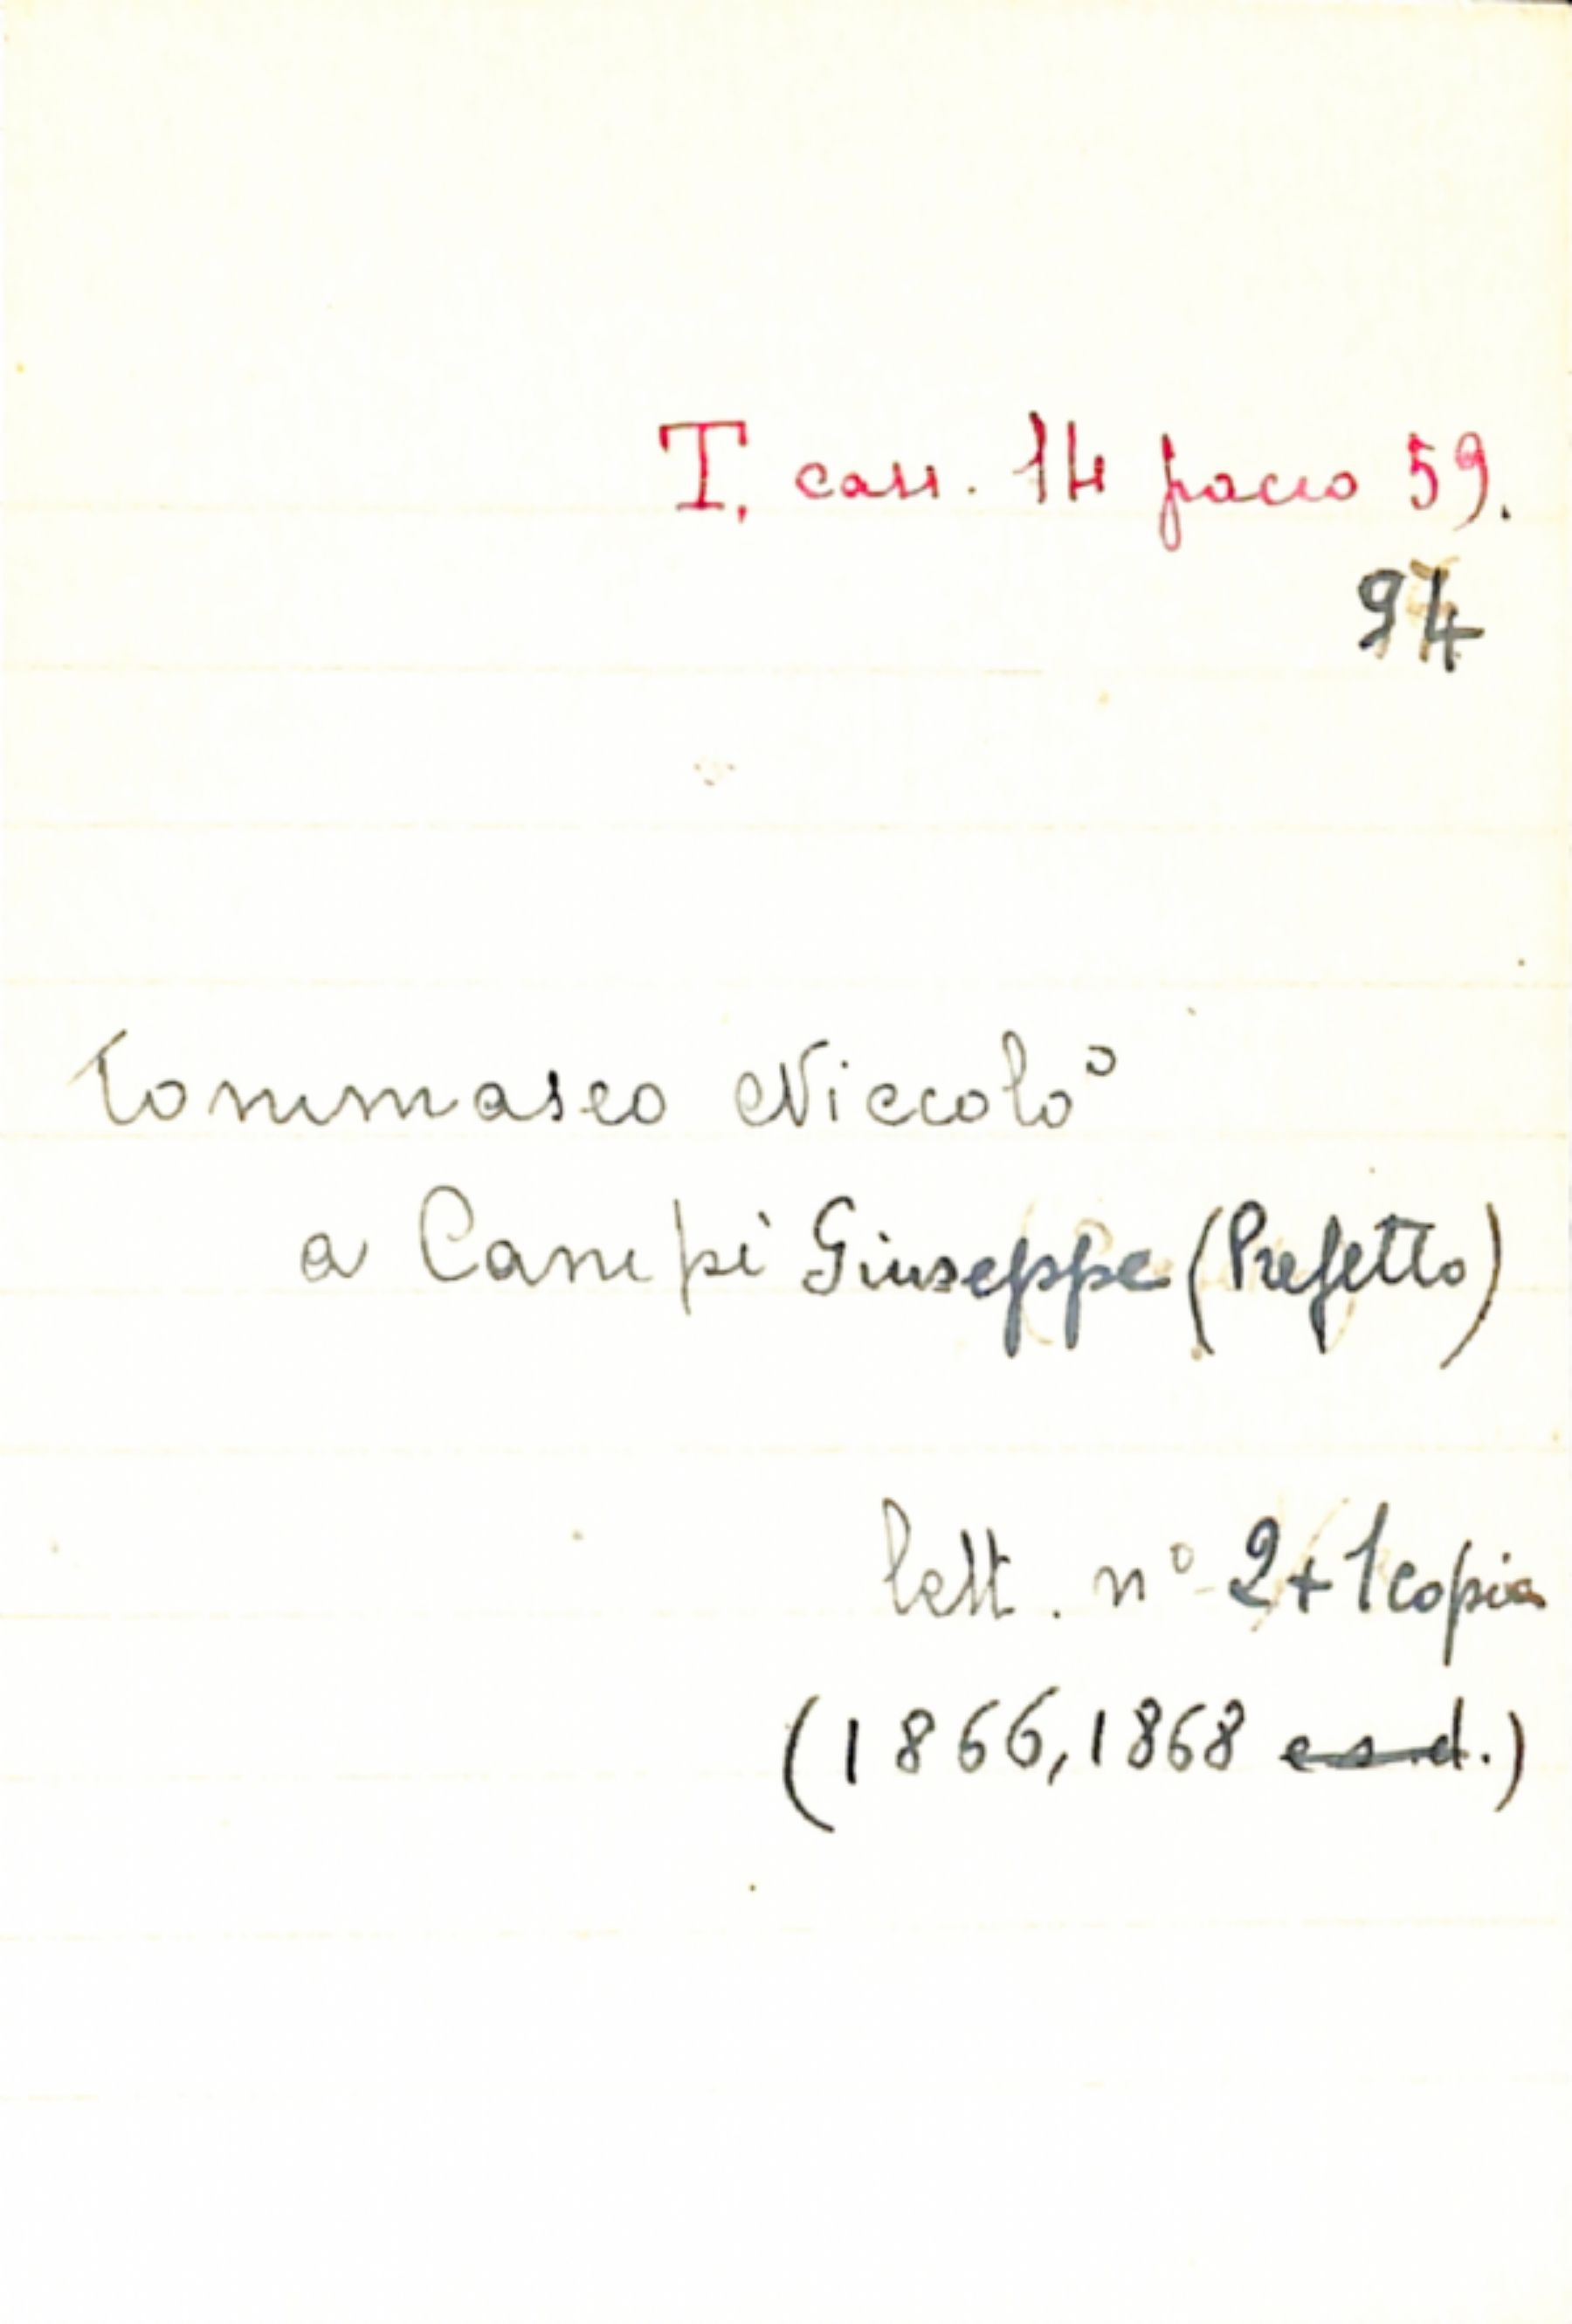 T. cass. 14 pacco 59.
94
Tommaseo Niccolò
a Campi Giuseppe (Prefetto)
lett. n° 2+1 copia
(1866, 1868 e s.d.)